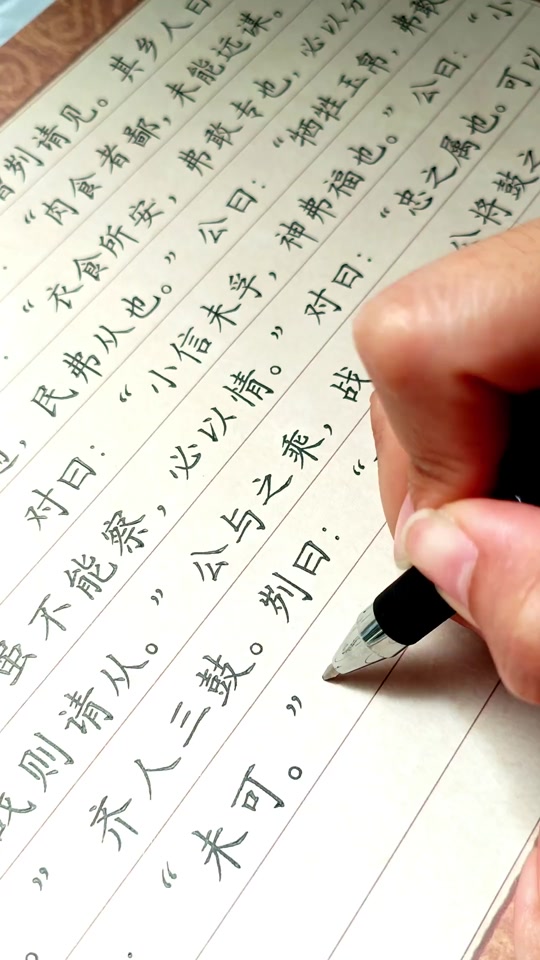 曹刿请见。其乡人曰
“肉食者鄙,未能远谋。
“衣食所安,弗敢专也,必以分
,民弗从也。”公曰:“牺牲玉帛,弗敢
对曰:“小信未孚,神弗福也。”公曰:“小
虽不能察,必以情。”对曰:“忠之属也。可以
战则请从。”公与之乘,战 公将鼓之
。”齐人三鼓。刿曰:“
“未可。”